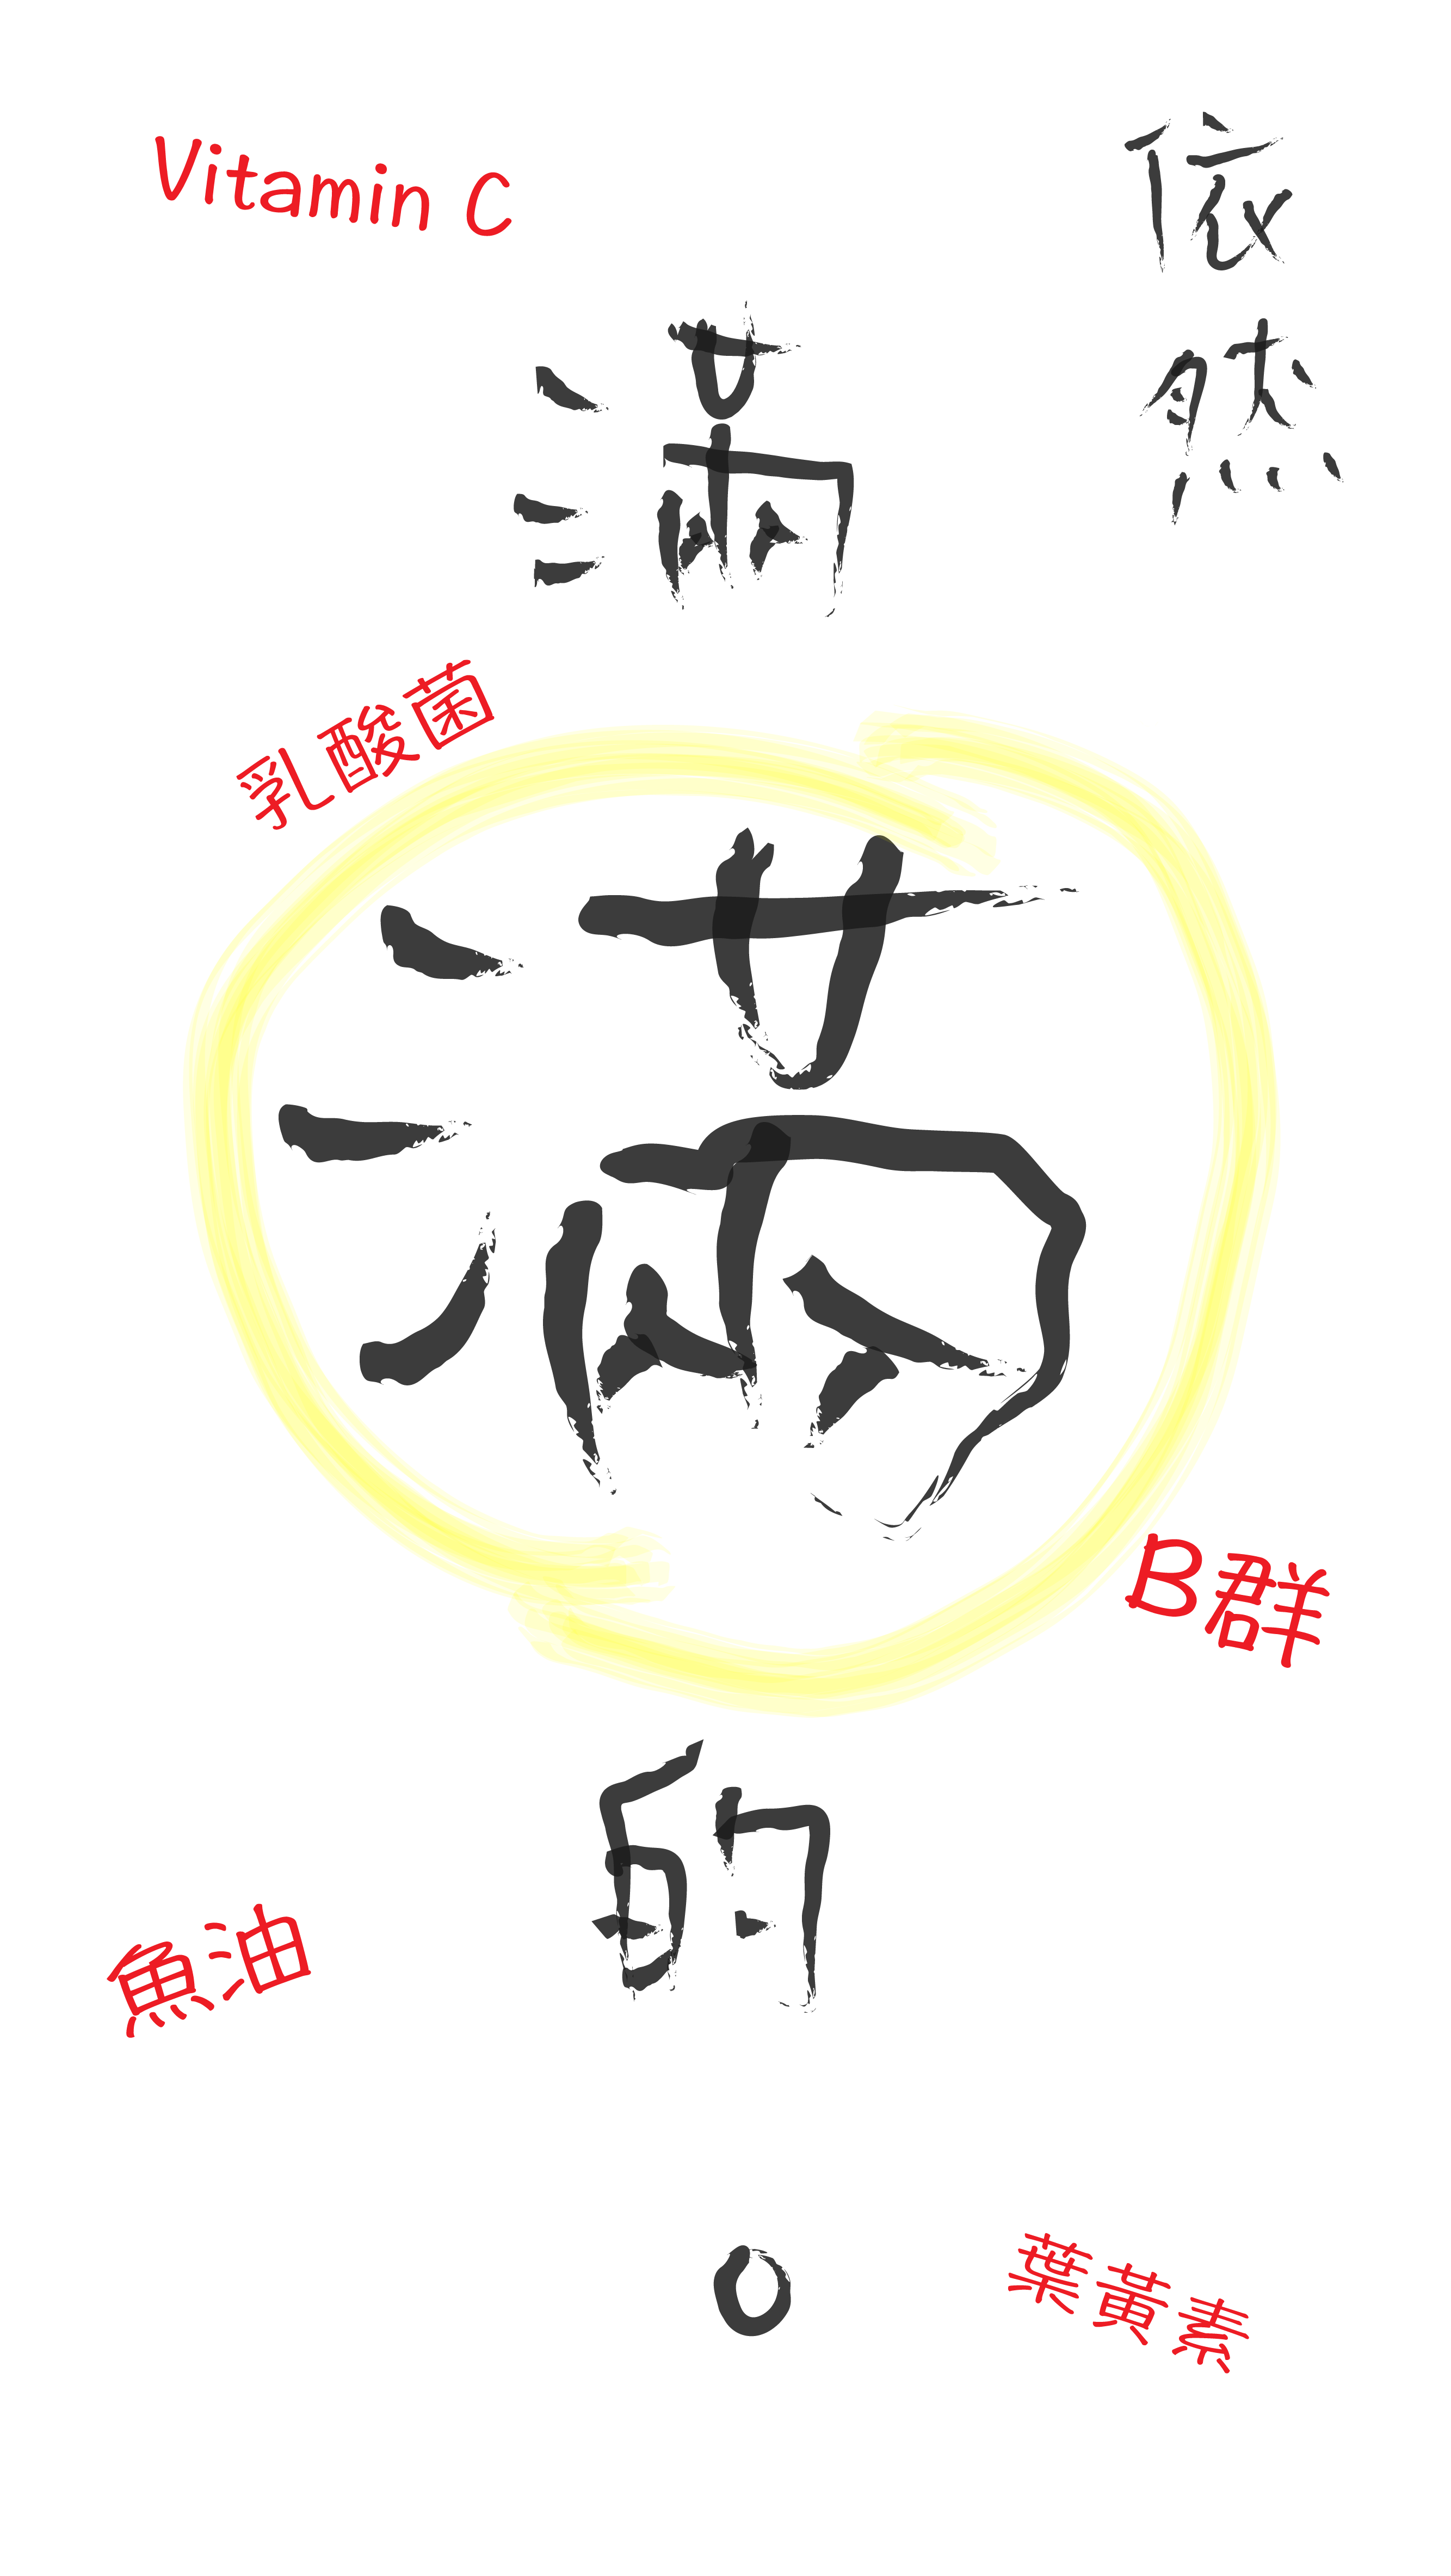 依然
滿滿的。
Vitamin C
乳酸菌
B群
魚油
葉黃素